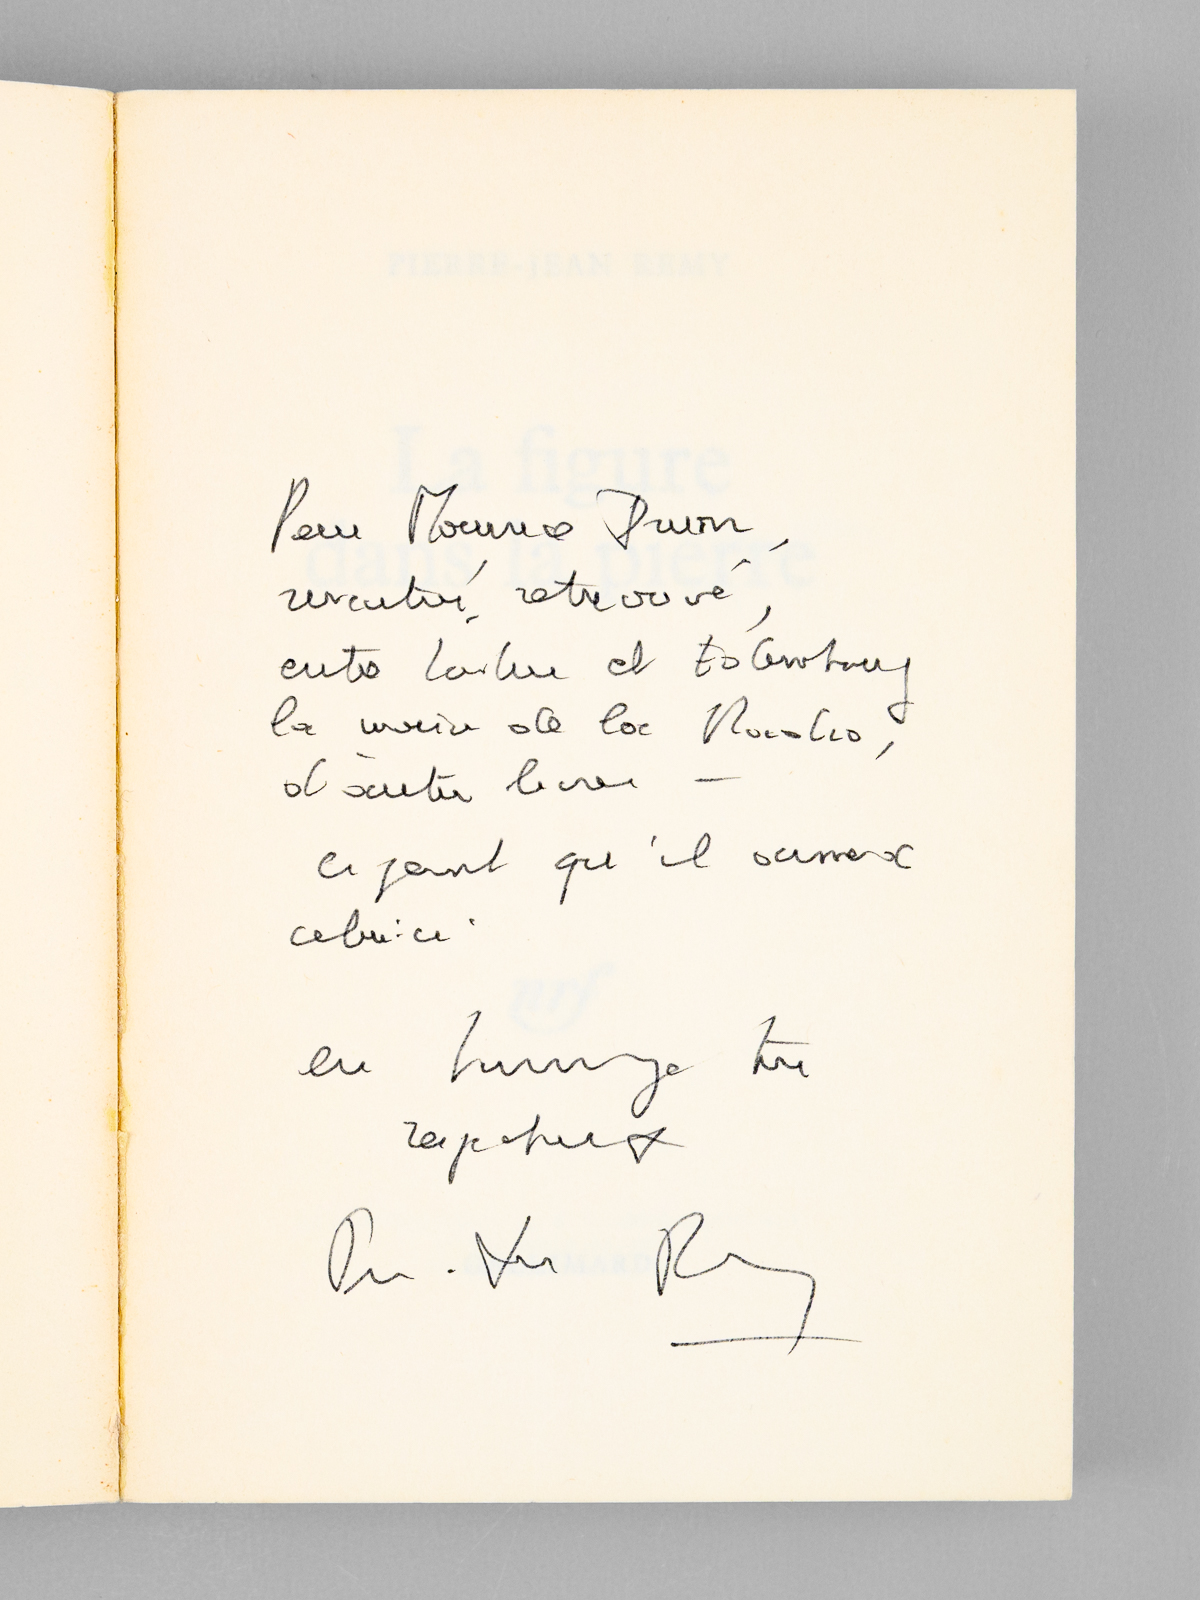 PIERRE-JEAN REMY
La figure
dans la pierre
Pour Maurice Druon,
rencontré, retrouvé,
entre et
la main de la Radio,
d'autres livres —
espérant qu'il aimera
celui-ci
nrf
en hommage très
respectueux
GALLIMARD
Pierre-Jean Remy